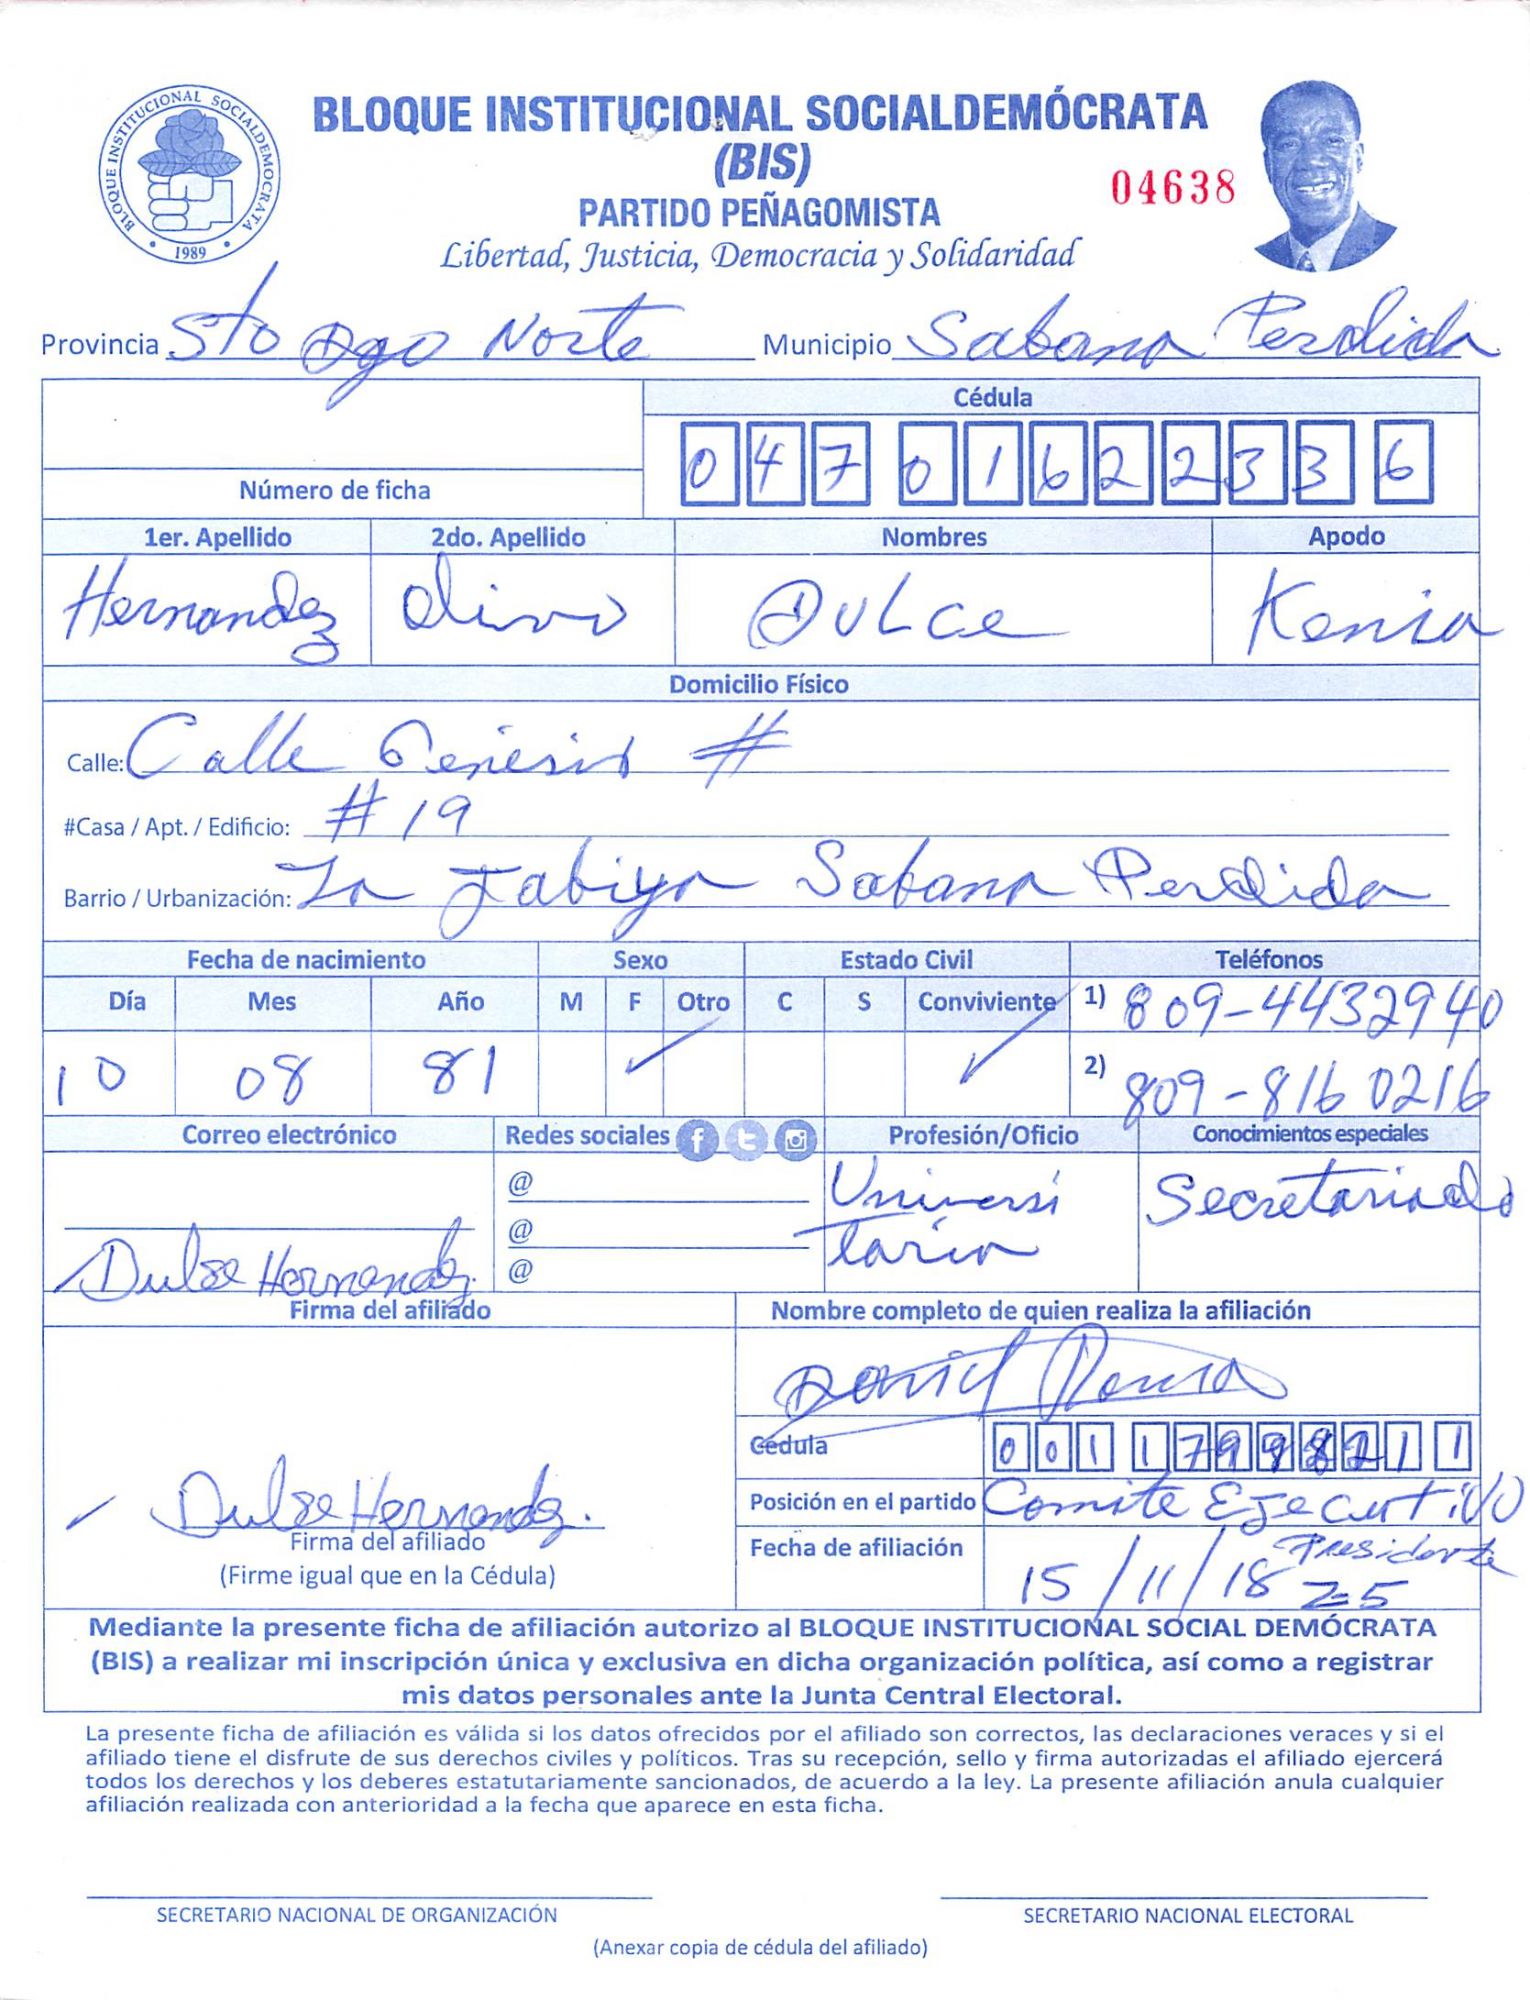 BLOQUE INSTITUCIONAL SOCIALDEMOCRATA
1989
BLOQUE INSTITUCIONAL SOCIALDEMÓCRATA
(BIS)
04638
PARTIDO PEÑAGOMISTA
Libertad, Justicia, Democracia y Solidaridad
Provincia Sto Dgo Norte Municipio Sabana Perdida
Cédula
047 0162233 6
Número de ficha
1er. Apellido 2do. Apellido Nombres Apodo
Hernandez Olivo DULCE Kenia
Domicilio Físico
Calle: Calle Genesis #
#Casa / Apt. / Edificio: #19
Barrio / Urbanización: La Jabiya Sabana Perdida
Fecha de nacimiento Sexo Estado Civil Teléfonos
Día Mes Año M F Otro C S Conviviente 1) 809-4432940
10 08 81 ✓ ✓ 2) 809-816 0216
Correo electrónico Redes sociales Profesión/Oficio Conocimientos especiales
@ Universi Secretariado
@ taria
Dulse Hernandez. @
Firma del afiliado Nombre completo de quien realiza la afiliación
Daniel
Cédula 001 1799821 1
Posición en el partido Comite Ejecutivo
Dulse Hernandez.
Firma del afiliado
(Firme igual que en la Cédula)
Fecha de afiliación 15/11/18 Presidente
Z-5
Mediante la presente ficha de afiliación autorizo al BLOQUE INSTITUCIONAL SOCIAL DEMÓCRATA
(BIS) a realizar mi inscripción única y exclusiva en dicha organización política, así como a registrar
mis datos personales ante la Junta Central Electoral.
La presente ficha de afiliación es válida si los datos ofrecidos por el afiliado son correctos, las declaraciones veraces y si el
afiliado tiene el disfrute de sus derechos civiles y políticos. Tras su recepción, sello y firma autorizadas el afiliado ejercerá
todos los derechos y los deberes estatutariamente sancionados, de acuerdo a la ley. La presente afiliación anula cualquier
afiliación realizada con anterioridad a la fecha que aparece en esta ficha.
SECRETARIO NACIONAL DE ORGANIZACIÓN SECRETARIO NACIONAL ELECTORAL
(Anexar copia de cédula del afiliado)